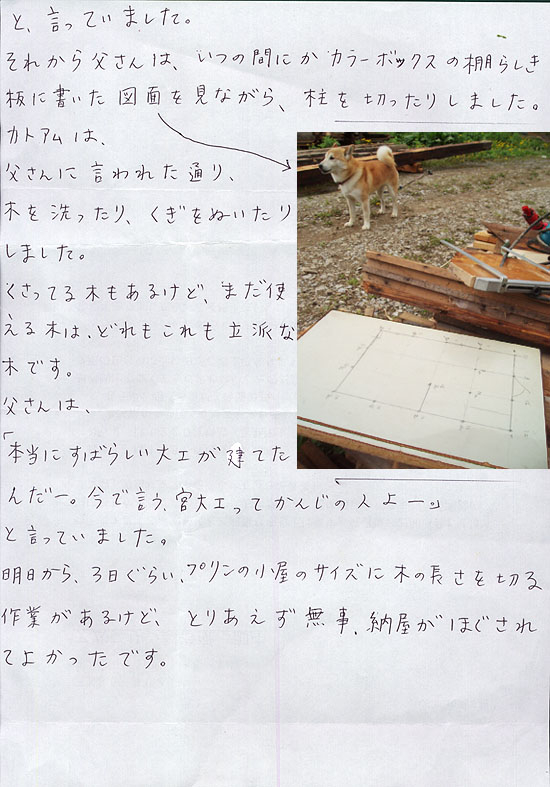 と、言っていました。
それから父さんは、いつの間にかカラーボックスの棚らしき
板に書いた図面を見ながら、柱を切ったりしました。
カトアムは、
父さんに言われた通り、
木を洗ったり、くぎをぬいたり
しました。
くさってる木もあるけど、まだ使
える木は、どれもこれも立派な
木です。
父さんは、
「本当にすばらしい大工が建てた
んだー。今で言う、宮大工ってかんじの人よー。」
と言っていました。
明日から、3日ぐらい、プリンの小屋のサイズに木の長さを切る
作業があるけど、とりあえず無事、納屋がほぐされ
てよかったです。